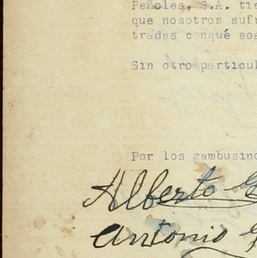 Peñoles, S.A. tie
que nosotros sufr
tradas conqué sos
Sin otro particul
Por los gambusino
Alberto
Antonio